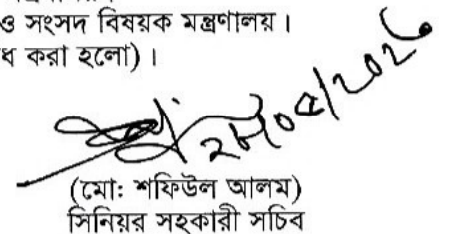 ও সংসদ বিষয়ক মন্ত্রণালয়।
ধ করা হলো)।
(মো: শফিউল আলম)
সিনিয়র সহকারী সচিব